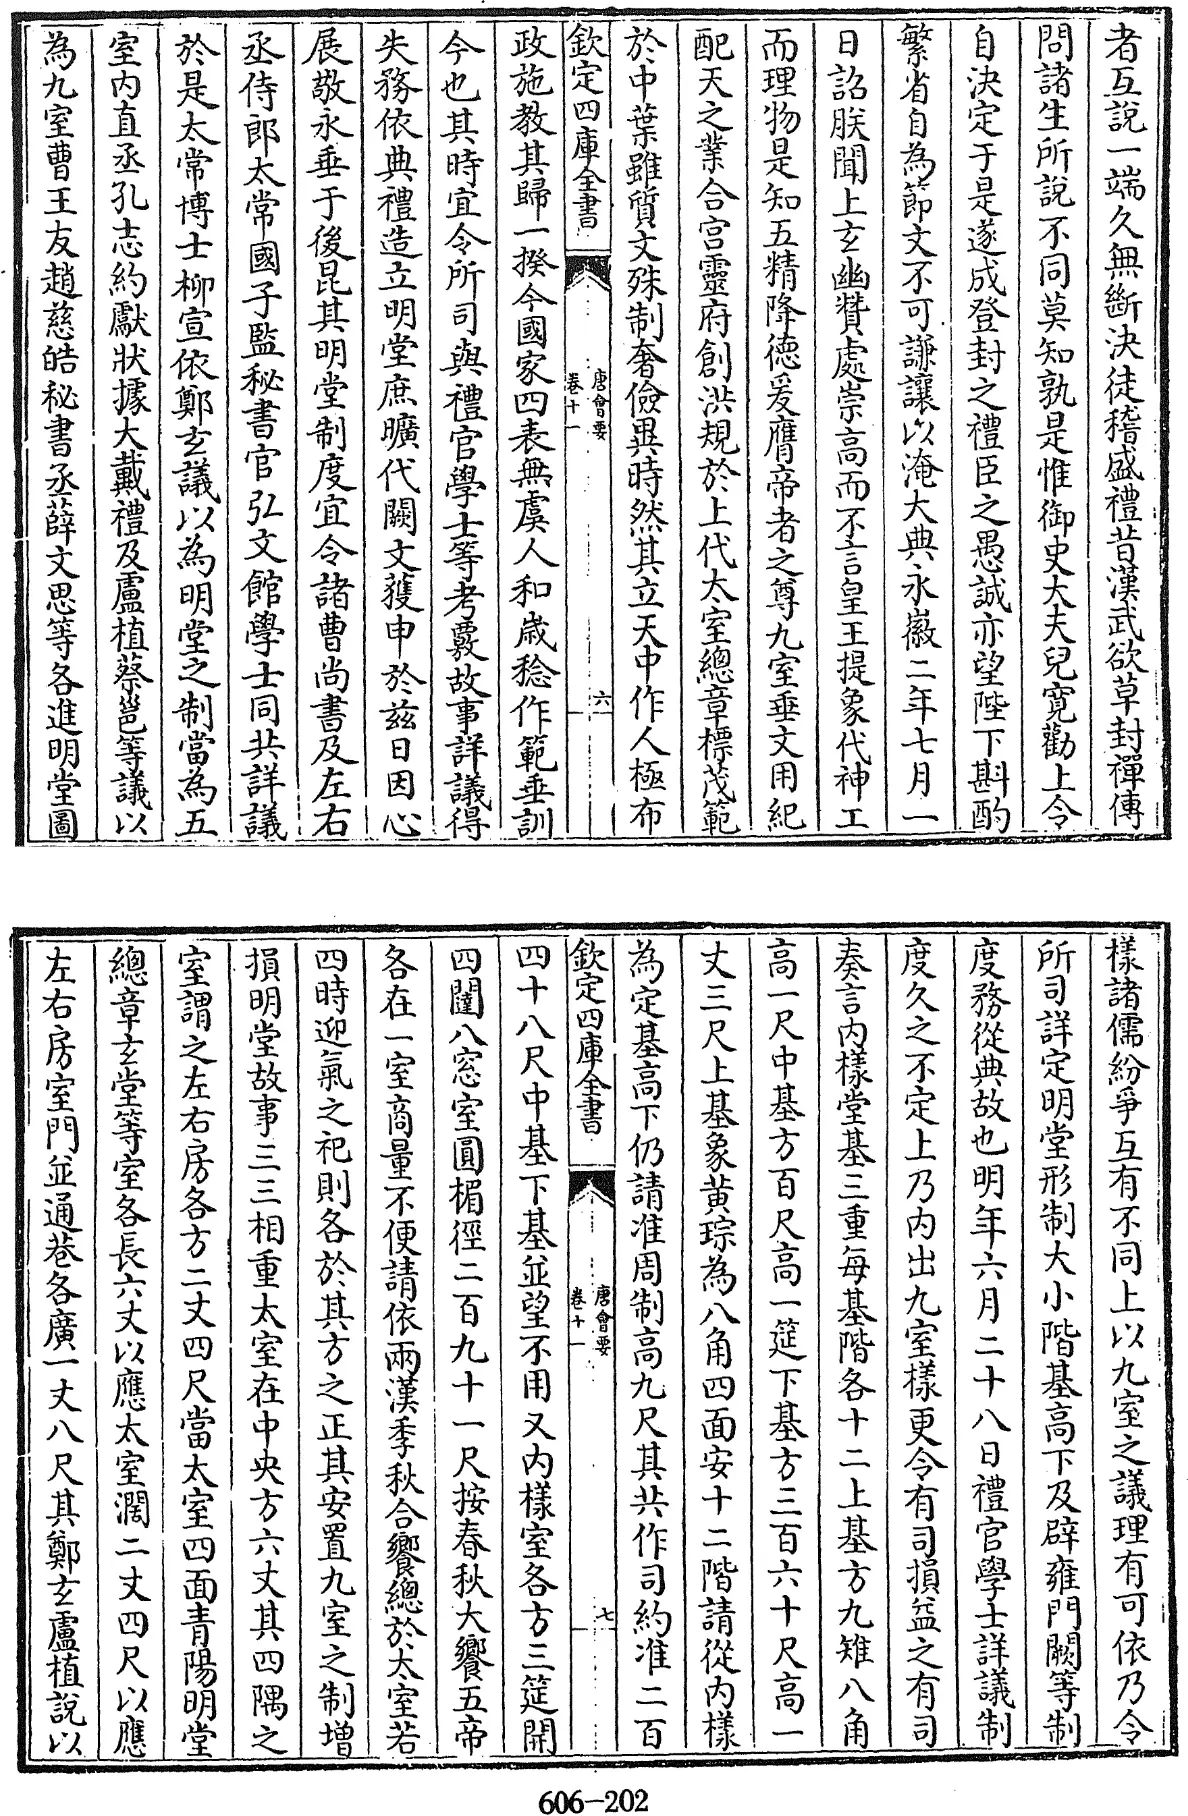 者互說一端久無斷決徒稽盛禮昔漢武欲草封禪傳
問諸生所說不同莫知孰是惟御史大夫兒寛勸上令
自決定于是遂成登封之禮臣之愚誠亦望陛下斟酌
繁省自為節文不可謙讓以淹大典永徽二年七月一
日詔朕聞上玄幽贊處崇高而不言皇王提象代神工
而理物是知五精降德爰膺帝者之尊九室垂文用紀
配天之業合宫靈府創洪規於上代太室總章標茂範
於中葉雖質文殊制奢儉異時然其立天中作人極布
欽定四庫全書
唐會要
卷十一
六
政施教其歸一揆今國家四表無虞人和歲稔作範垂訓
今也其時宜令所司與禮官學士等考覈故事詳議得
失務依典禮造立明堂庶曠代闕文獲申於兹日因心
展敬永垂于後昆其明堂制度宜令諸曹尚書及左右
丞侍郎太常國子監秘書官弘文館學士同共詳議
於是太常博士柳宣依鄭玄議以為明堂之制當為五
室内直丞孔志約獻狀據大戴禮及盧植蔡邕等議以
為九室曹王友趙慈皓秘書丞薛文思等各進明堂圖
樣諸儒紛爭互有不同上以九室之議理有可依乃令
所司詳定明堂形制大小階基高下及辟雍門闕等制
度務從典故也明年六月二十八日禮官學士詳議制
度久之不定上乃内出九室樣更令有司損益之有司
奏言内樣堂基三重每基階各十二上基方九雉八角
高一尺中基方百尺高一筵下基方三百六十尺高一
丈三尺上基象黄琮為八角四面安十二階請從内樣
為定基高下仍請准周制高九尺其共作司約准二百
欽定四庫全書
唐會要
卷十一
七
四十八尺中基下基並望不用又内樣室各方三筵開
四闥八窓室圓楣徑二百九十一尺按春秋大饗五帝
各在一室商量不便請依兩漢季秋合饗總於太室若
四時迎氣之祀則各於其方之正其安置九室之制增
損明堂故事三三相重太室在中央方六丈其四隅之
室謂之左右房各方二丈四尺當太室四面青陽明堂
總章玄堂等室各長六丈以應太室濶二丈四尺以應
左右房室門並通巷各廣一丈八尺其鄭玄盧植說以
606-202